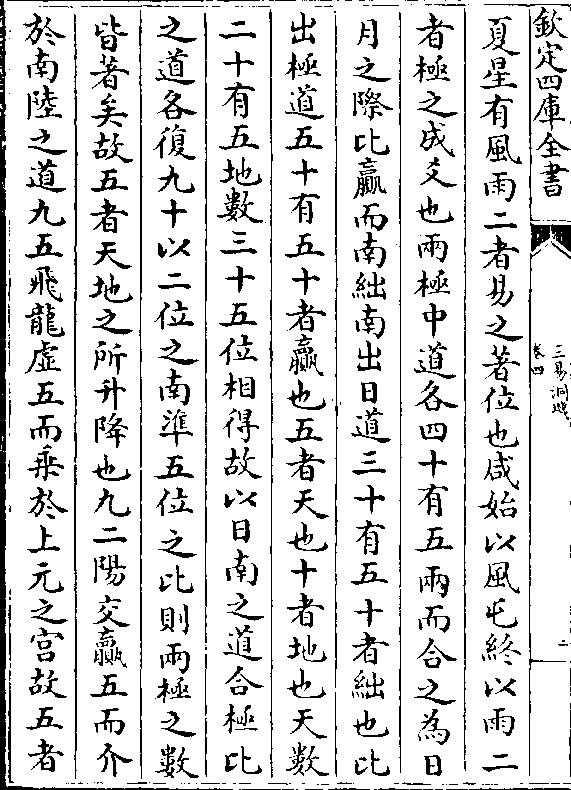 欽定四庫全書
三易洞璣
卷四
二
夏星有風雨二者易之著位也咸始以風屯終以雨二
者極之成爻也兩極中道各四十有五兩而合之為日
月之際比贏而南絀南出日道三十有五十者絀也比
出極道五十有五十者贏也五者天也十者地也天數
二十有五地數三十五位相得故以日南之道合極比
之道各復九十以二位之南準五位之比則兩極之數
皆著矣故五者天地之所升降也九二陽交贏五而介
於南陸之道九五飛龍虛五而乗於上元之宮故五者